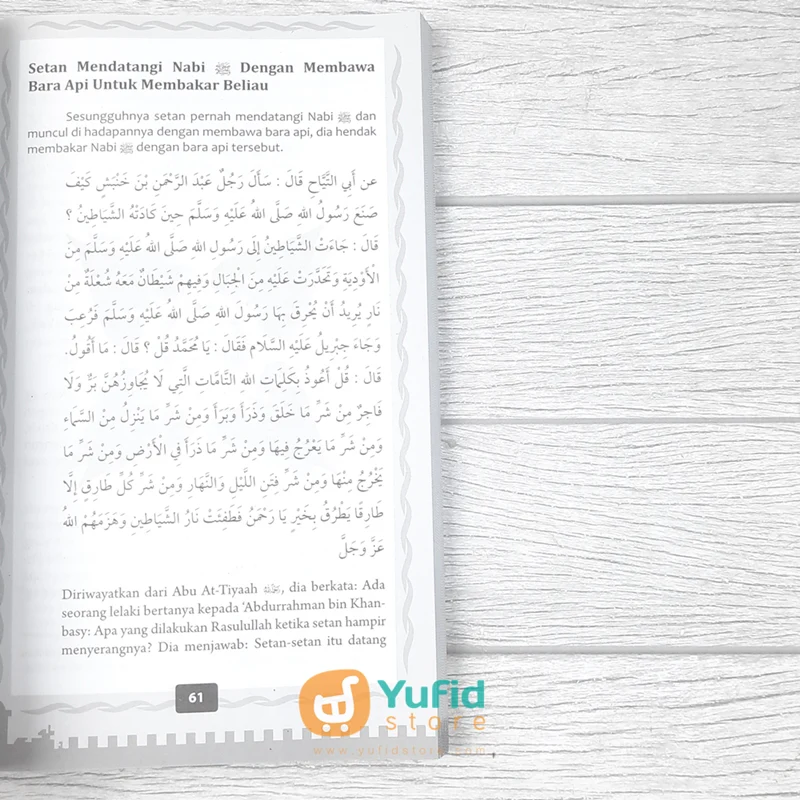 Setan Mendatangi Nabi ﷺ Dengan Membawa
Bara Api Untuk Membakar Beliau
Sesungguhnya setan pernah mendatangi Nabi ﷺ dan
muncul di hadapannya dengan membawa bara api, dia hendak
membakar Nabi ﷺ dengan bara api tersebut.
عن أَبِي التَّيَّاحِ قَالَ : سَأَلَ رَجُلٌ عَبْدَ الرَّحْمَنِ بْنَ خَنْبَسٍ كَيْفَ
صَنَعَ رَسُولُ اللهِ صَلَّى اللهُ عَلَيْهِ وَسَلَّمَ حِينَ كَادَتْهُ الشَّيَاطِينُ ؟
قَالَ : جَاءَتْ الشَّيَاطِينُ إِلَى رَسُولِ اللهِ صَلَّى اللهُ عَلَيْهِ وَسَلَّمَ مِنَ
الْأَوْدِيَةِ وَتَحَدَّرَتْ عَلَيْهِ مِنَ الْجِبَالِ وَفِيهِمْ شَيْطَانٌ مَعَهُ شُعْلَةٌ مِنْ
نَارٍ يُرِيدُ أَنْ يُحْرِقَ بِهَا رَسُولَ اللهِ صَلَّى اللهُ عَلَيْهِ وَسَلَّمَ فَرُعِبَ
وَجَاءَ جِبْرِيلُ عَلَيْهِ السَّلَام فَقَالَ : يَا مُحَمَّدُ قُلْ ؟ قَالَ : مَا أَقُولُ.
قَالَ : قُلْ أَعُوذُ بِكَلِمَاتِ اللهِ التَّامَّاتِ الَّتِي لَا يُجَاوِزُهُنَّ بَرٌّ وَلَا
فَاجِرٌ مِنْ شَرِّ مَا خَلَقَ وَذَرَأَ وَبَرَأَ وَمِنْ شَرِّ مَا يَنْزِلُ مِنْ السَّمَاءِ
وَمِنْ شَرِّ مَا يَعْرُجُ فِيهَا وَمِنْ شَرِّ مَا ذَرَأَ فِي الْأَرْضِ وَمِنْ شَرِّ مَا
يَخْرُجُ مِنْهَا وَمِنْ شَرِّ فِتَنِ اللَّيْلِ وَالنَّهَارِ وَمِنْ شَرِّ كُلِّ طَارِقٍ إِلَّا
طَارِقًا يَطْرُقُ بِخَيْرٍ يَا رَحْمَنُ فَطَفِئَتْ نَارُ الشَّيَاطِينِ وَهَزَمَهُمْ اللهُ
عَزَّ وَجَلَّ
Diriwayatkan dari Abu At-Tiyaah , dia berkata: Ada
seorang lelaki bertanya kepada ‘Abdurrahman bin Khan-
basy: Apa yang dilakukan Rasulullah ketika setan hampir
menyerangnya? Dia menjawab: Setan-setan itu datang
61
Yufid
store
www.yufidstore.com